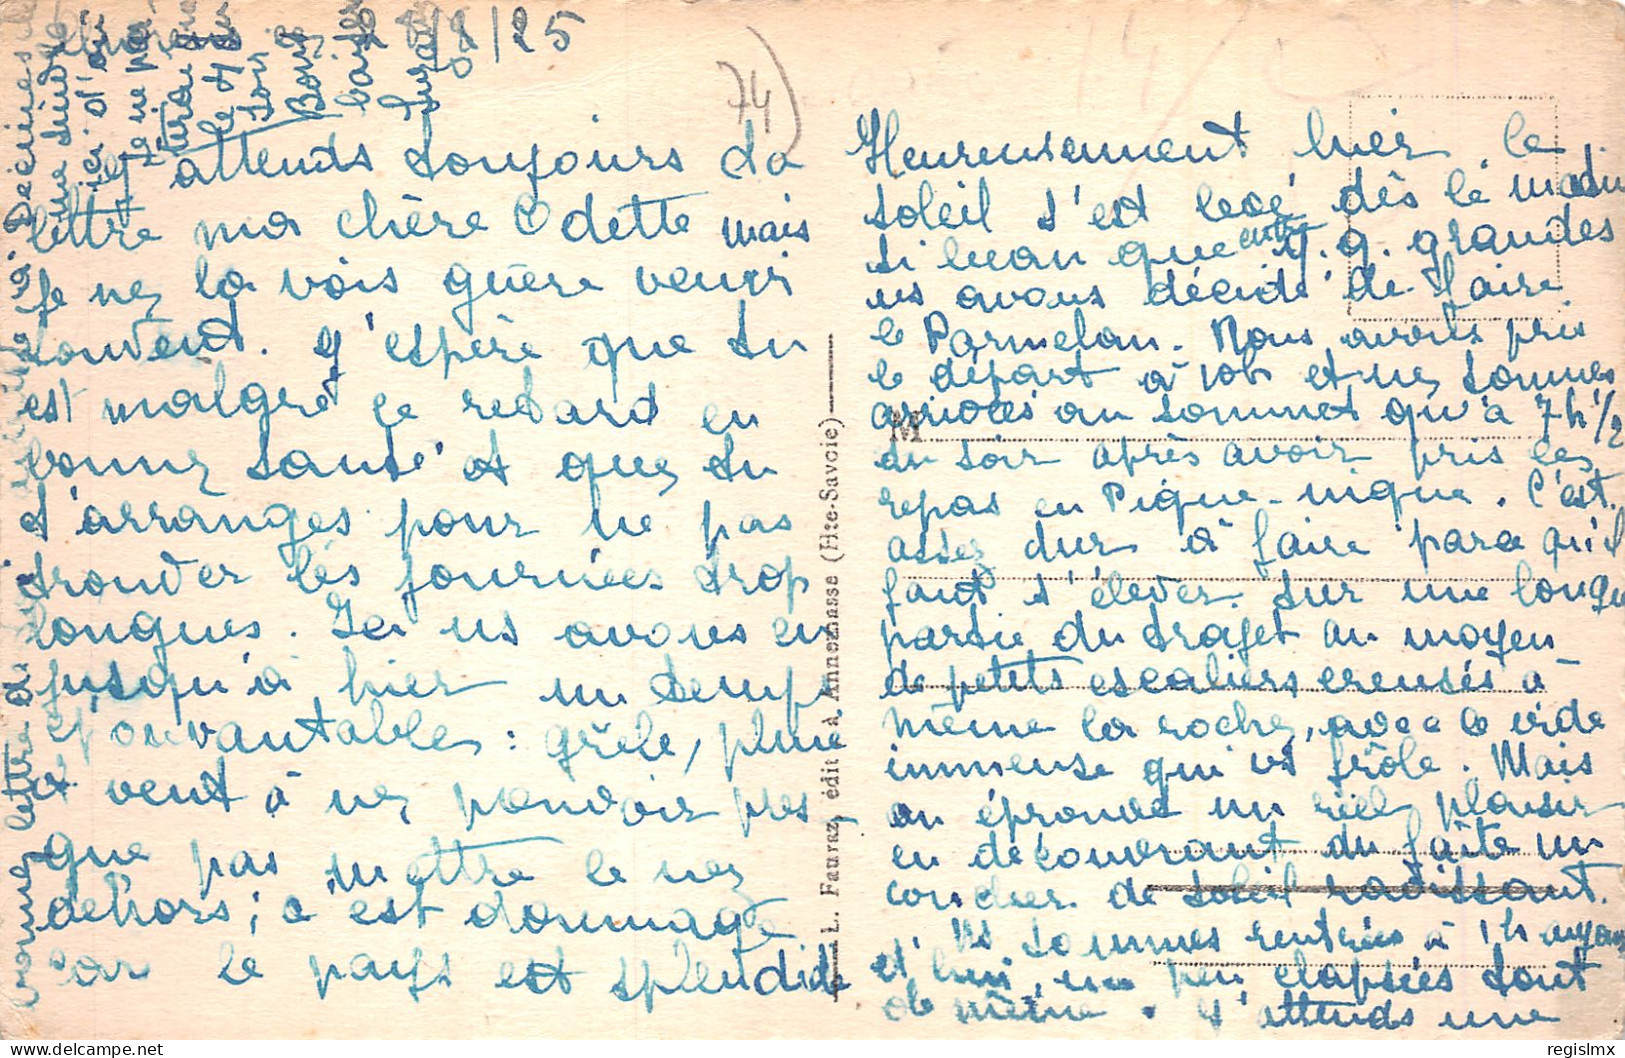 8/25
74
J'attends toujours ta
lettre ma chère Odette mais
je ne la vois guère venir
souvent. J'espère que tu
est malgré ce retard en
bonne santé et que tu
t'arranges pour ne pas
trouver les journées trop
longues. Ici ns avons eu
jusqu'à hier un temps
épouvantable : grêle, pluie
et vent à ne pouvoir pres-
que pas mettre le nez
dehors ; c'est dommage
car le pays est splendide
L. Fauraz, édit à Annemasse (Hte-Savoie)
M
Heureusement hier le
soleil s'est levé dès le matin
si beau que entre q.q. grandes
ns avons décidé de faire
le Parmelan. Nous avons pris
le départ à 10h et ne sommes
arrivées au sommet qu'à 7h 1/2
du soir après avoir pris les
repas en Pique-nique. C'est
assez dur à faire parce qu'il
faut s'élever sur une longue
partie du trajet au moyen
de petits escaliers creusés à
même la roche, avec le vide
immense qui vs frôle. Mais
on éprouve un réel plaisir
en découvrant du faîte un
coucher de soleil radissant.
Ns sommes rentrées à 1h
un peu elapsées tout
de même. J'attends une
bonne lettre de
Bons
baisers